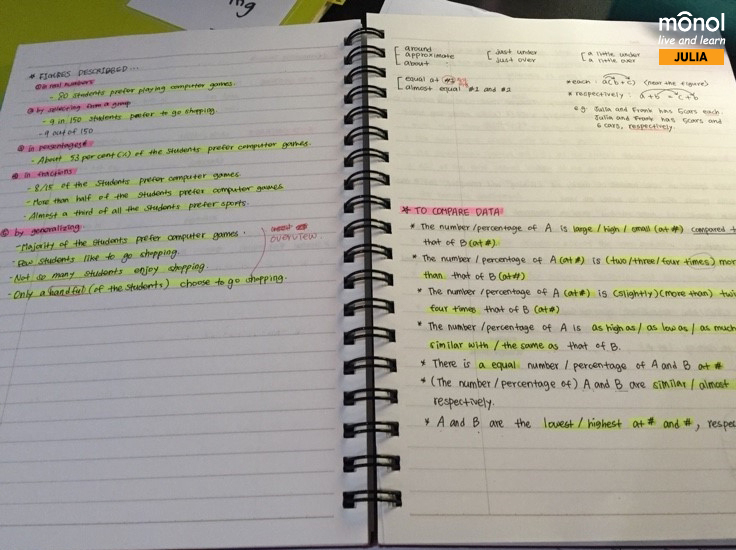 ng
monol
live and learn
JULIA
* FIGURES DESCRIBED...
① in real numbers
- 80 students prefer playing computer games.
② by selecting from a group
- 9 in 150 students prefer to go shopping.
- 9 out of 150
③ in percentages
- About 53 per cent (%) of the students prefer computer games.
④ in fractions
- 8/15 of the students prefer computer games
- More than half of the students prefer computer games
- Almost a third of all the students prefer sports.
⑤ by generalizing
- Majority of the students prefer computer games.
- Few students like to go shopping.
- Not so many students enjoy shopping
- Only a handful (of the students) choose to go shopping.
overview
around
approximate
about
just under
just over
a little under
a little over
equal at #1
almost equal #1 and #2
* each : a(b+c) (near the figure)
* respectively : a+b = c+b
e.g. Julia and Frank has 5cars each.
Julia and Frank has 5cars and
6 cars, respectively.
* TO COMPARE DATA
* The number/percentage of A is large / high / small (at #) compared t
that of B (at #).
* The number/percentage of A (at #) is (two/three/four times) mor
than that of B (at #)
* The number/percentage of A (at #) is (slightly) (more than) twi
four times that of B (at #)
* The number/percentage of A is as high as / as low as / as much
similar with / the same as that of B.
* There is a equal number / percentage of A and B at #
* (The number/percentage of) A and B are similar / almost
respectively.
* A and B are the lowest / highest at # and #, respec